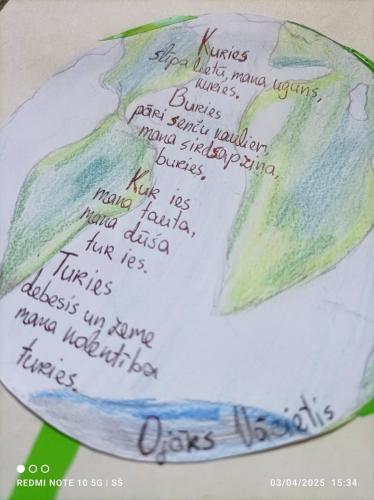 Kuries
slīpā lietū, mana uguns,
kuries.
Buries
pāri senču kauliem,
mana sirdsapziņa,
buries.
Kur ies
mana tauta,
mana dūša
tur ies.
Turies
debesīs un zemē
mana nolemtība
turies.
Ojārs Vācietis
REDMI NOTE 10 5G | SŠ
03/04/2025 15:34